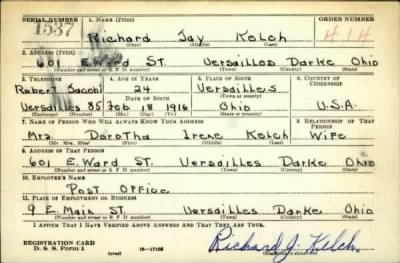 SERIAL NUMBER 1. NAME (Print) ORDER NUMBER
1537 Richard Jay Kelch 414
(First) (Middle) (Last)
2. ADDRESS (Print)
601 E. Ward ST. Versailles Darke Ohio
(Number and street or R. F. D. number) (Town) (County) (State)
3. TELEPHONE 4. AGE IN YEARS 5. PLACE OF BIRTH 6. COUNTRY OF CITIZENSHIP
Robert Jacobi 24 Versailles
DATE OF BIRTH (Town or county)
Versailles 85 Feb 18 1916 Ohio U.S.A.
(Exchange) (Number) (Mo.) (Day) (Yr.) (State or country)
7. NAME OF PERSON WHO WILL ALWAYS KNOW YOUR ADDRESS 8. RELATIONSHIP OF THAT PERSON
Mrs. Dorotha Irene Kelch Wife
(Mr., Mrs., Miss) (First) (Middle) (Last)
9. ADDRESS OF THAT PERSON
601 E. Ward ST. Versailles Darke Ohio
(Number and street or R. F. D. number) (Town) (County) (State)
10. EMPLOYER'S NAME
Post Office
11. PLACE OF EMPLOYMENT OR BUSINESS
9 E. Main ST. Versailles Darke Ohio
(Number and street or R. F. D. number) (Town) (County) (State)
I AFFIRM THAT I HAVE VERIFIED ABOVE ANSWERS AND THAT THEY ARE TRUE.
REGISTRATION CARD
D. S. S. Form 1 16-17105 Richard J. Kelch
(Registrant's signature)